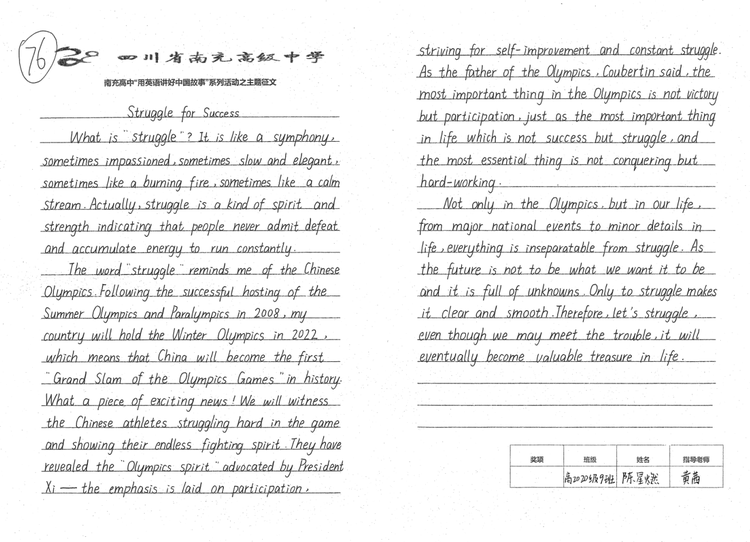 76
四川省南充高级中学
南充高中"用英语讲好中国故事"系列活动之主题征文
Struggle for Success
What is "struggle"? It is like a symphony,
sometimes impassioned, sometimes slow and elegant,
sometimes like a burning fire, sometimes like a calm
stream. Actually, struggle is a kind of spirit and
strength indicating that people never admit defeat
and accumulate energy to run constantly.
The word "struggle" reminds me of the Chinese
Olympics. Following the successful hosting of the
Summer Olympics and Paralympics in 2008, my
country will hold the Winter Olympics in 2022,
which means that China will become the first
"Grand Slam of the Olympics Games" in history.
What a piece of exciting news! We will witness
the Chinese athletes struggling hard in the game
and showing their endless fighting spirit. They have
revealed the "Olympics spirit" advocated by President
Xi — the emphasis is laid on participation,
striving for self-improvement and constant struggle.
As the father of the Olympics, Coubertin said, the
most important thing in the Olympics is not victory
but participation, just as the most important thing
in life which is not success but struggle, and
the most essential thing is not conquering but
hard-working.
Not only in the Olympics, but in our life,
from major national events to minor details in
life, everything is inseparatable from struggle. As
the future is not to be what we want it to be
and it is full of unknowns. Only to struggle makes
it clear and smooth. Therefore, let's struggle,
even though we may meet the trouble, it will
eventually become valuable treasure in life.
奖项 班级 姓名 指导老师
高2020级9班 陈星燃 黄茜